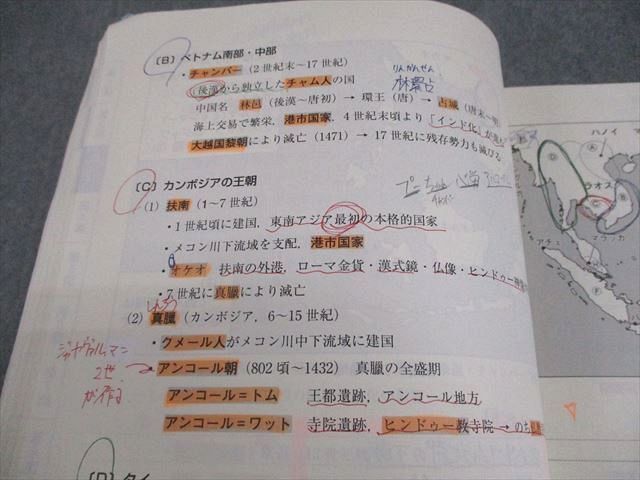 〔B〕ベトナム南部・中部
・チャンパー（2世紀末〜17世紀）
後漢から独立したチャム人の国
りんかんせん
中国名 林邑（後漢〜唐初）→ 環王（唐）→ 占城（唐末〜
海上交易で繁栄，港市国家，4世紀末頃より「インド化」が
大越国黎朝により滅亡（1471）→ 17世紀に残存勢力も滅びる
〔C〕カンボジアの王朝
(1) 扶南（1〜7世紀）
・1世紀頃に建国，東南アジア最初の本格的国家
・メコン川下流域を支配，港市国家
・オケオ 扶南の外港，ローマ金貨・漢式鏡・仏像・ヒンドゥー
・7世紀に真臘により滅亡
しんろう
(2) 真臘（カンボジア，6〜15世紀）
・クメール人がメコン川中下流域に建国
・アンコール朝（802頃〜1432） 真臘の全盛期
ジャヤヴァルマン
2世
アンコール＝トム 王都遺跡，アンコール地方
アンコール＝ワット 寺院遺跡，ヒンドゥー教寺院→のち
〔D〕タイ
ハノイ
ラオス